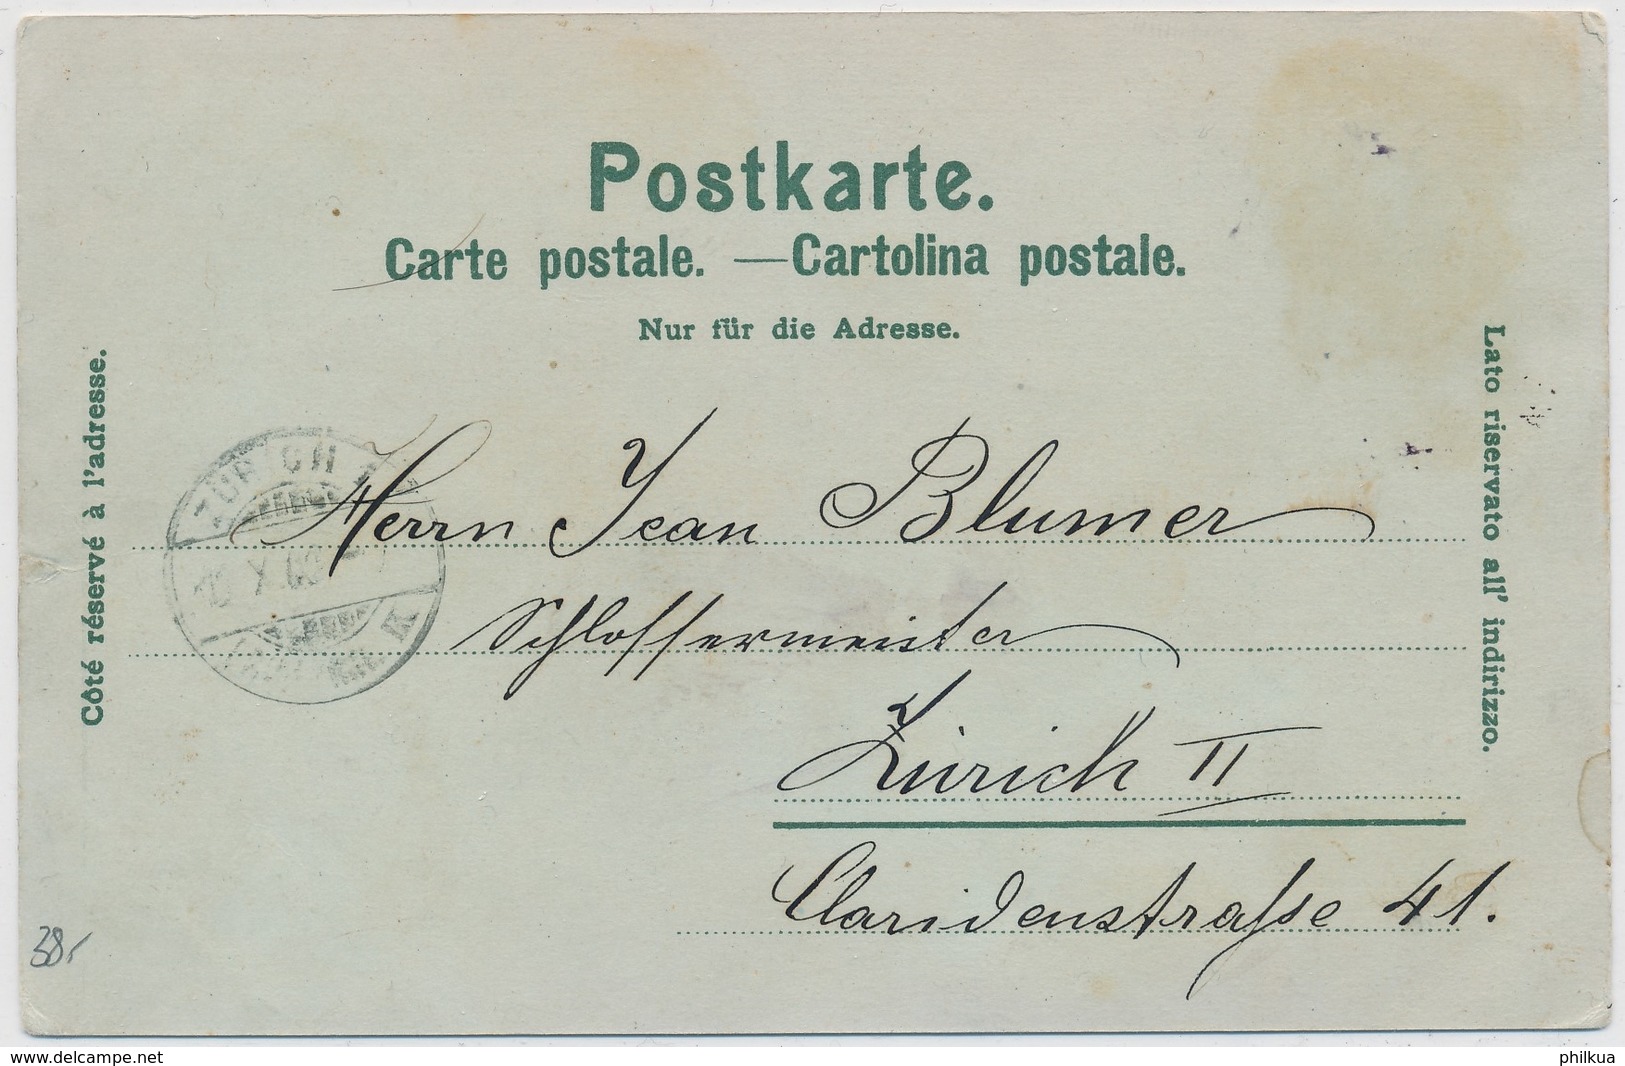 Postkarte.
Carte postale. — Cartolina postale.
Nur für die Adresse.
Côté réservé à l'adresse.
Lato riservato all' indirizzo.
ZÜRICH
X.
K
Herrn Jean Blumer
Schlossermeister
Zürich II
Claridenstrasse 41.
38.-
www.delcampe.net
philkua